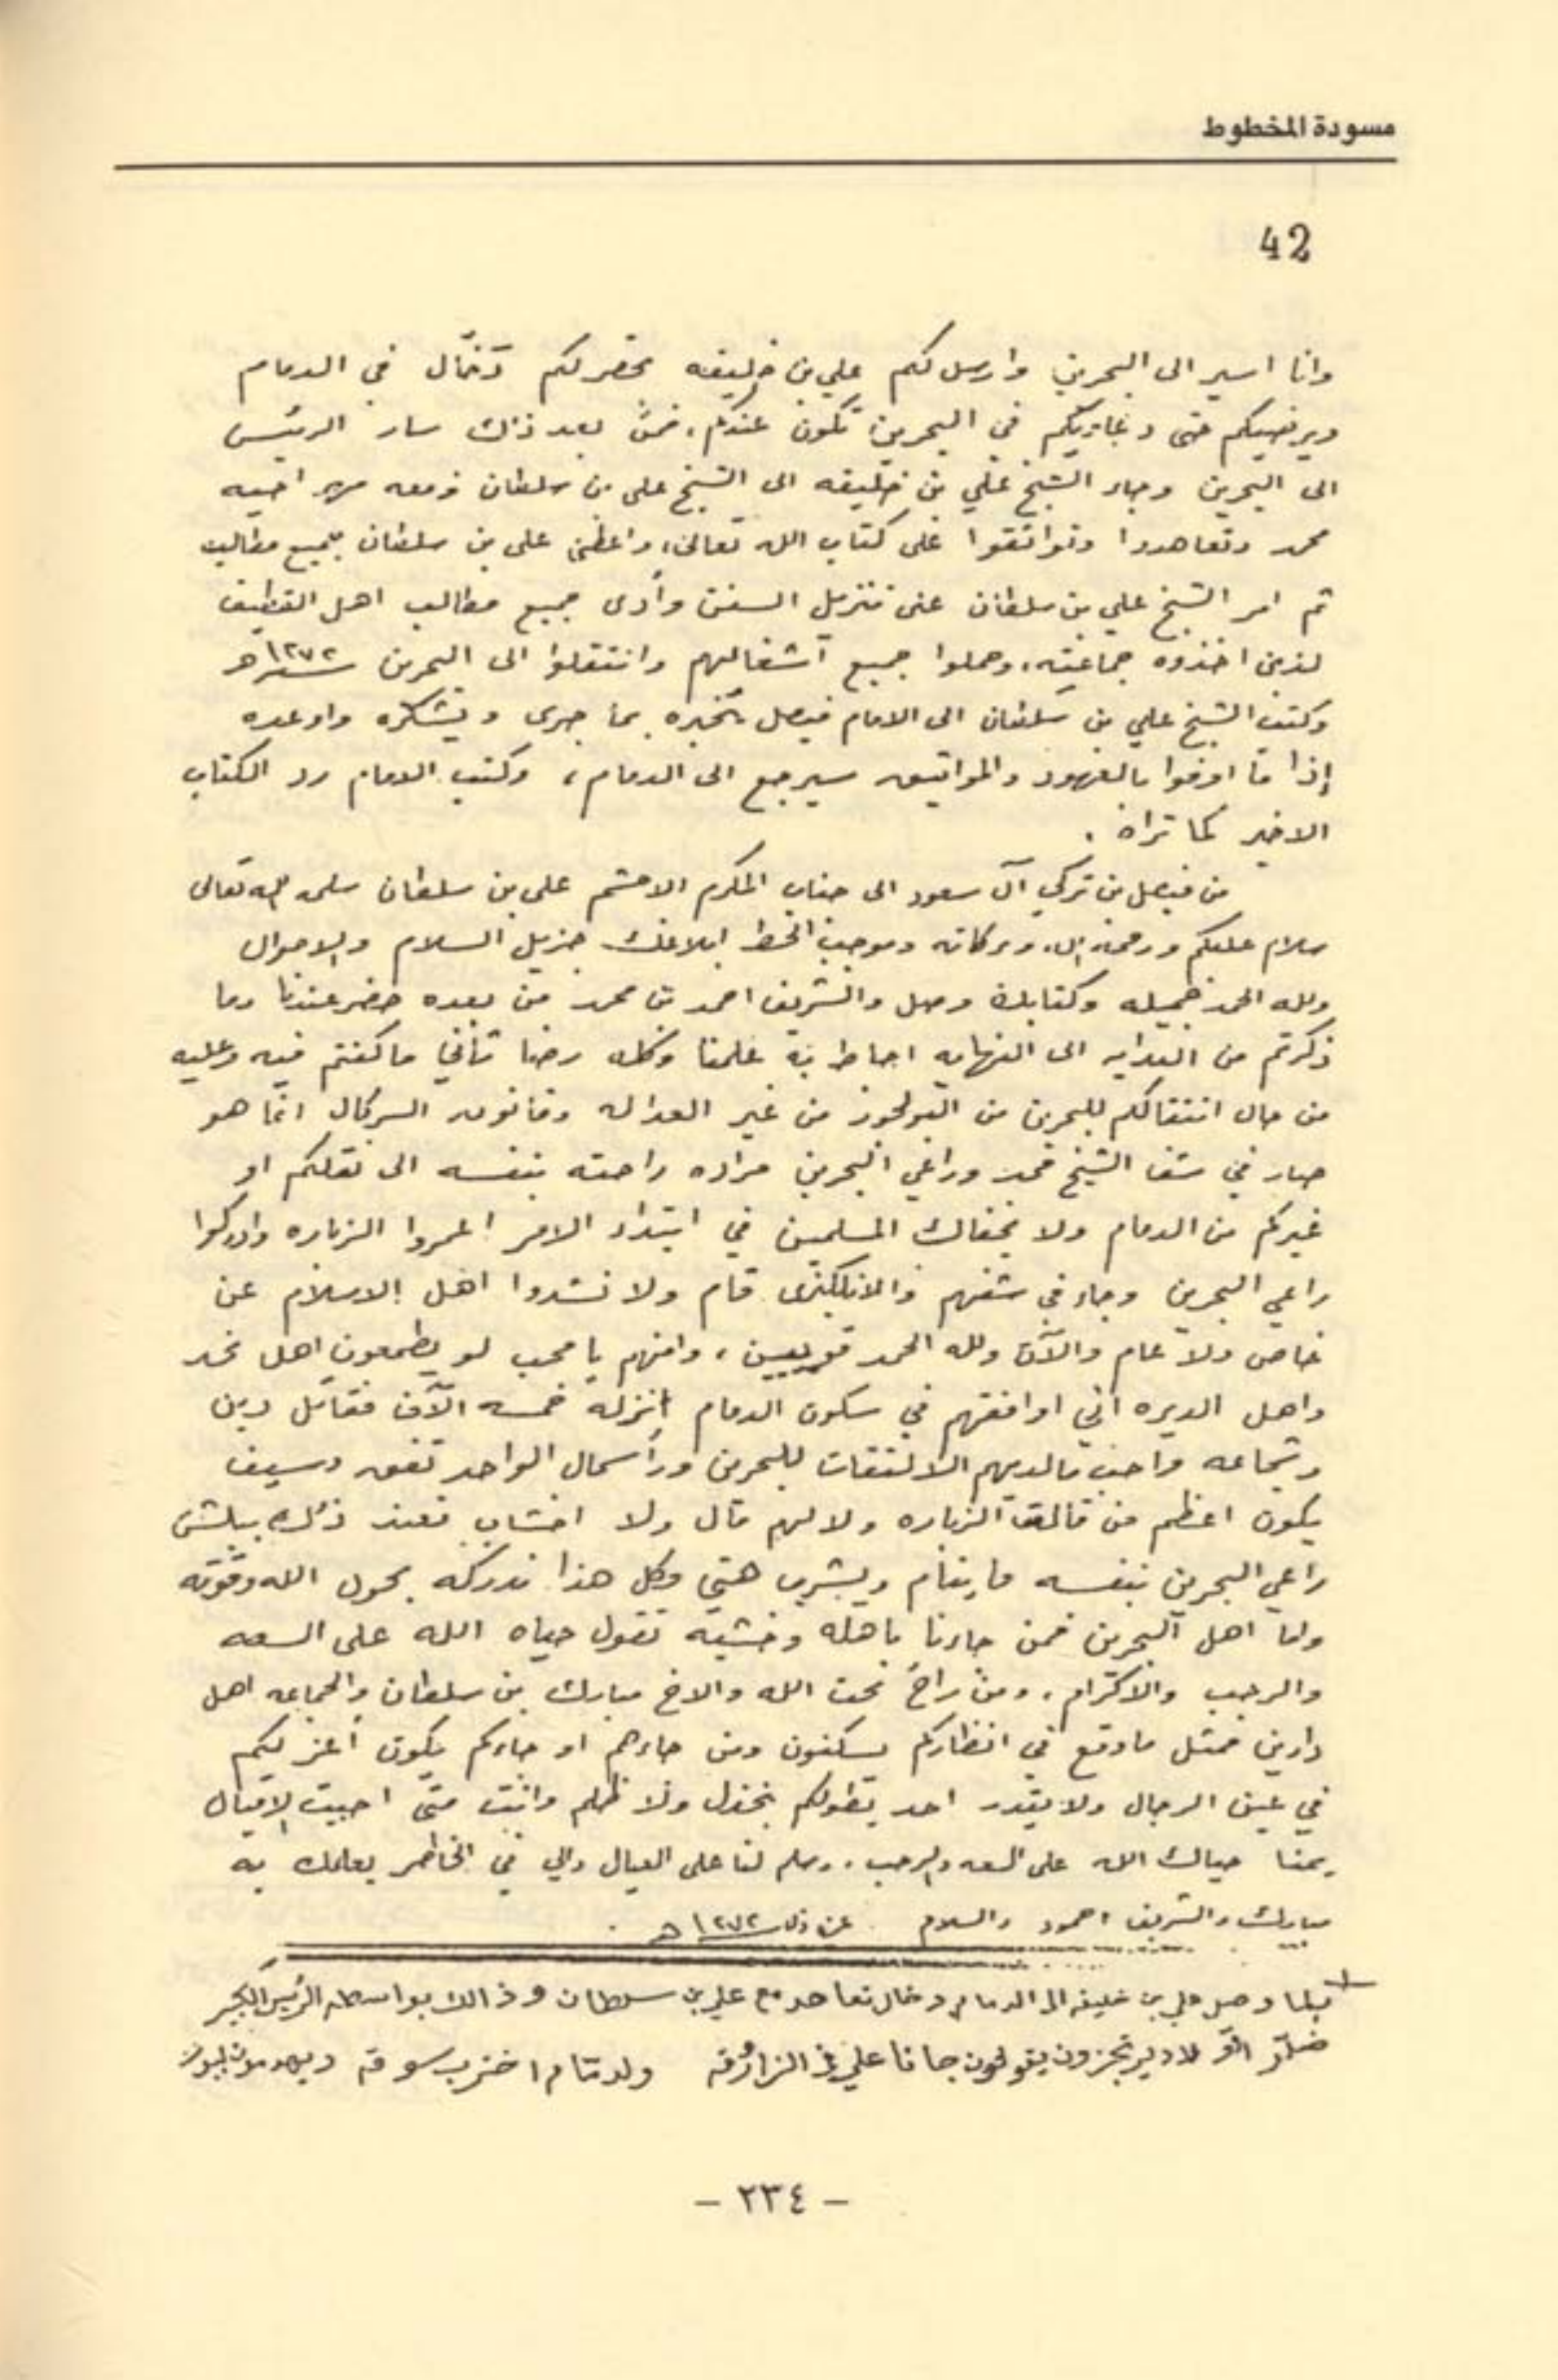 مسودة المخطوط
42
وانا اسير الى البحرين وارسل لكم علي بن خليفه يحضر لكم في الدمام
ويرضيكم حتى في البحرين تكون عندكم، فمن بعد ذلك سار الرئيس
الى البحرين وجاء الشيخ علي بن خليفه الى الشيخ علي بن سلطان ومعه مهر اخيه
محمد وتعاهدوا وتواثقوا على كتاب الله تعالى، واعطى علي بن سلطان جميع مطاليب
ثم امر الشيخ علي بن سلطان على تنزيل السفن وأدى جميع مطالب اهل القطيف
لذين اخذوه جماعته، وحملوا جميع أشغالهم وانتقلوا الى البحرين سنة ١٢٧٢هـ
وكتب الشيخ علي بن سلطان الى الامام فيصل يخبره بما جرى ويشكره واوعده
إذا ما اوفوا بالعهود والمواثيق سيرجع الى الدمام، وكتب الامام رد الكتاب
الاخير كما تراه .
من فيصل بن تركي آل سعود الى جناب المكرم الاحشم علي بن سلطان سلمه الله تعالى
سلام عليكم ورحمة الله وبركاته وموجب الخط ابلاغك جزيل السلام والاحوال
ولله الحمد جميله وكتابك وصل والشريف احمد بن محمد من بعده حضر عندنا وما
ذكرتم من البدايه الى النهايه احاط به علمنا وكله رضا ما كنتم فيه وعليه
من حال انتقالكم للبحرين من غير العداله وقانون السركال انما هو
صار في شفا الشيخ محمد وراعي البحرين مراده راحته بنفسه الى نقلكم او
غيركم من الدمام ولا يخفاك المسلمين في ابتداء الامر اعمروا الزباره وادركوا
راعي البحرين وجاء في شفهم والانكليزي قام ولا نشدوا اهل الاسلام عن
خاص ولا عام والآن ولله الحمد قويين، وانهم يا محب لو يطمعون اهل نجد
واهل الديره اني اوافقهم في سكون الدمام انزله خمسه آلاف مقاتل دين
وشجاعه واحب ما لديهم الالتفات للبحرين ورأسمال الواحد تفق وسيف
يكون اعظم من الزباره ولا لهم مال ولا اخشاب فعند ذلك يبلش
راعي البحرين بنفسه ما ينام ويشرب هني وكل هذا ندركه بحول الله وقوته
واما اهل البحرين فمن جاءنا باهله وخشبه نقول حياه الله على السعه
والرحب والاكرام، ومن راح تحت الله والاخ مبارك بن سلطان والجماعه اهل
دارين فمثل ما وقع في انظاركم يسكنون ومن جاءهم او جاءكم يكون أعز لكم
في عين الرجال ولا يقدر احد ولا ظلم وانت متى احببت الاقبال
يمنا حياك الله على السعه والرحب، وسلم لنا على العيال والي في الخاطر يعلمك به
مبارك والشريف احمود والسلام سنة ١٢٧٢هـ .
وصل علي بن خليفه الى الدمام تعاهد مع علي بن سلطان وذالك بواسطه الرئيس الكبير
يقولون جانا علي في ولد اخرب سوقه
- ٢٣٤ -